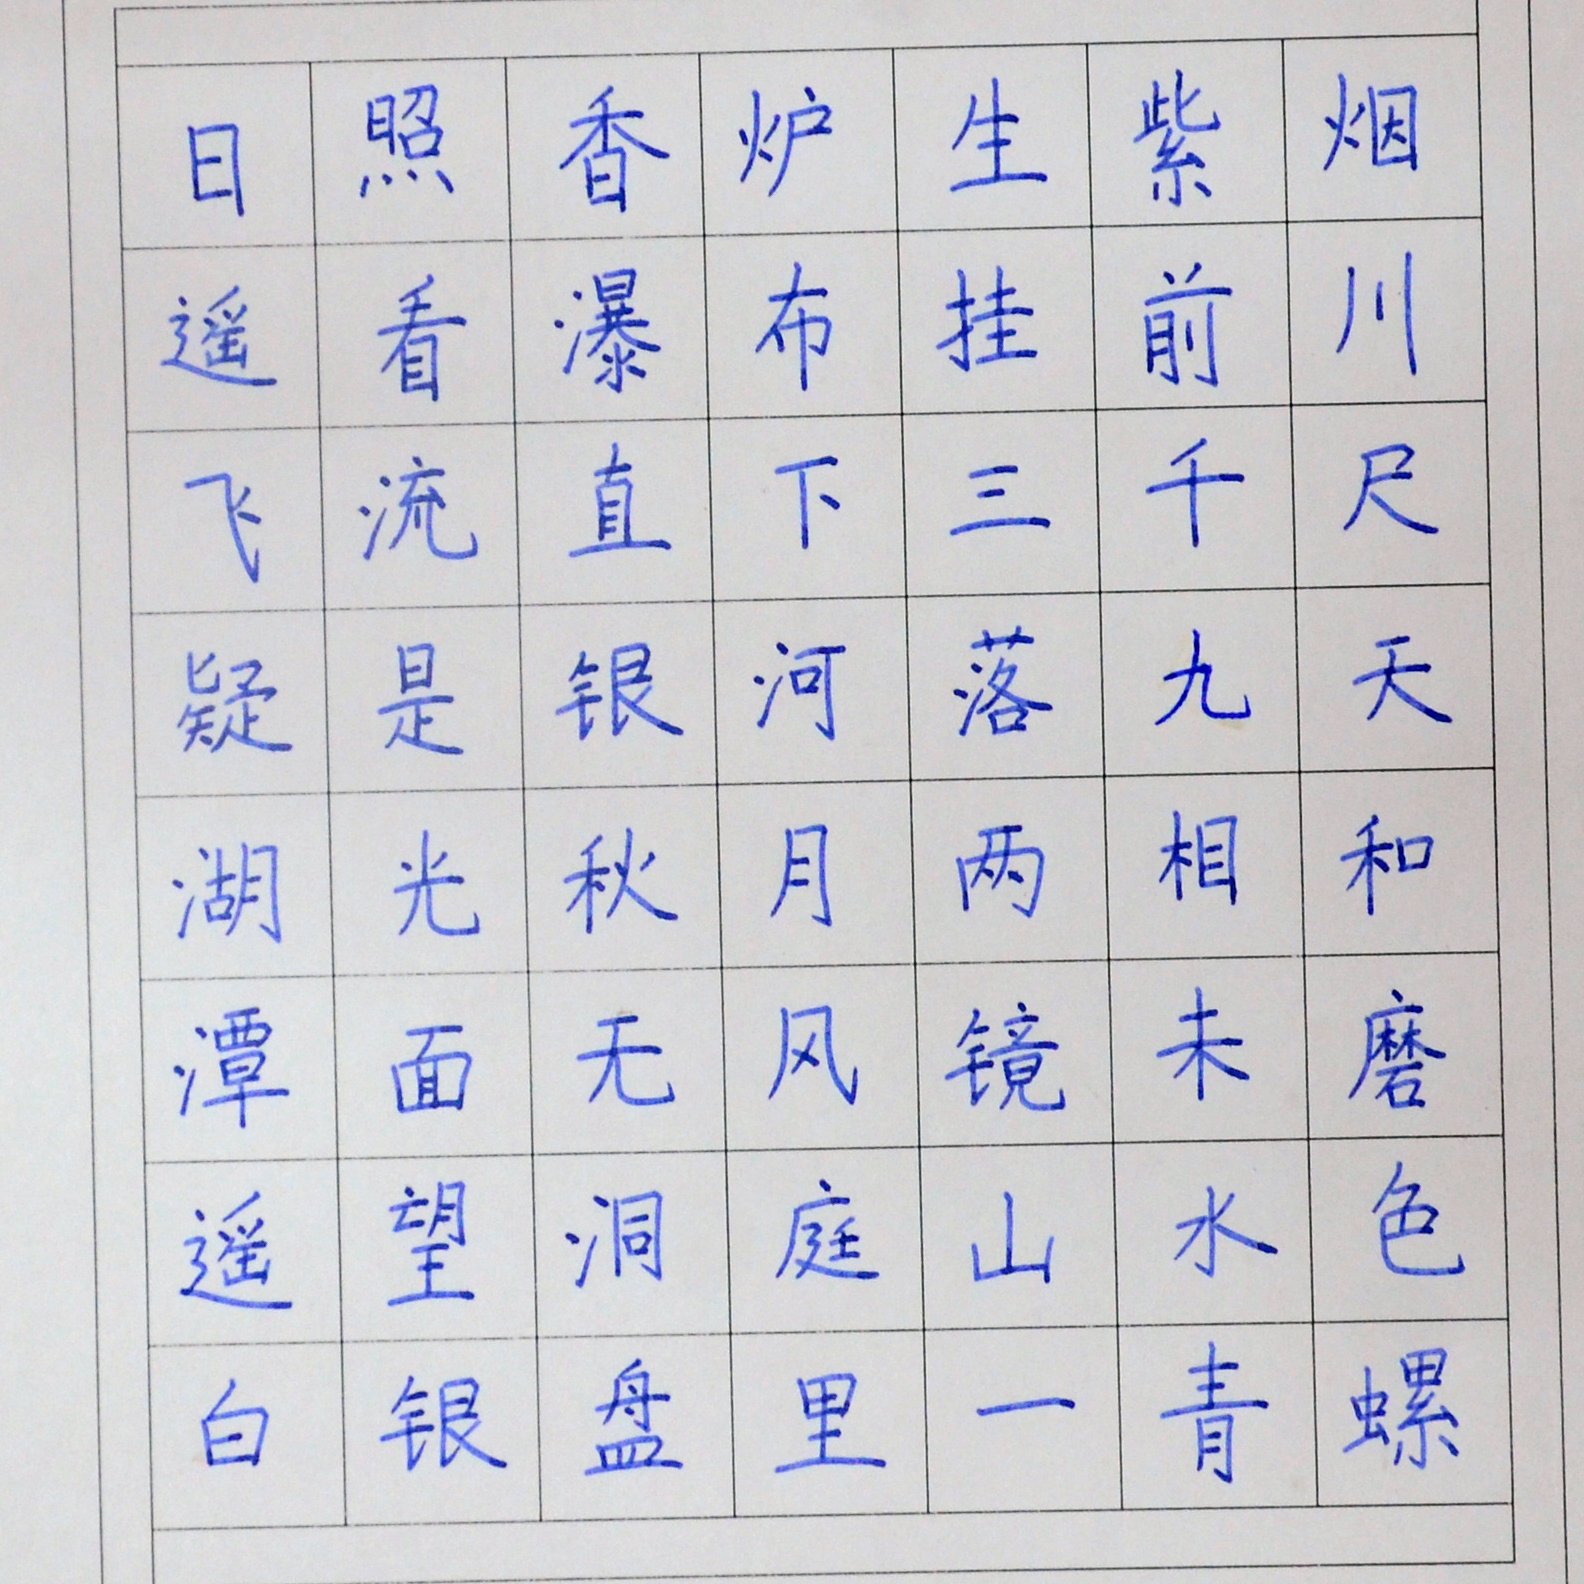 日照香炉生紫烟
遥看瀑布挂前川
飞流直下三千尺
疑是银河落九天
湖光秋月两相和
潭面无风镜未磨
遥望洞庭山水色
白银盘里一青螺